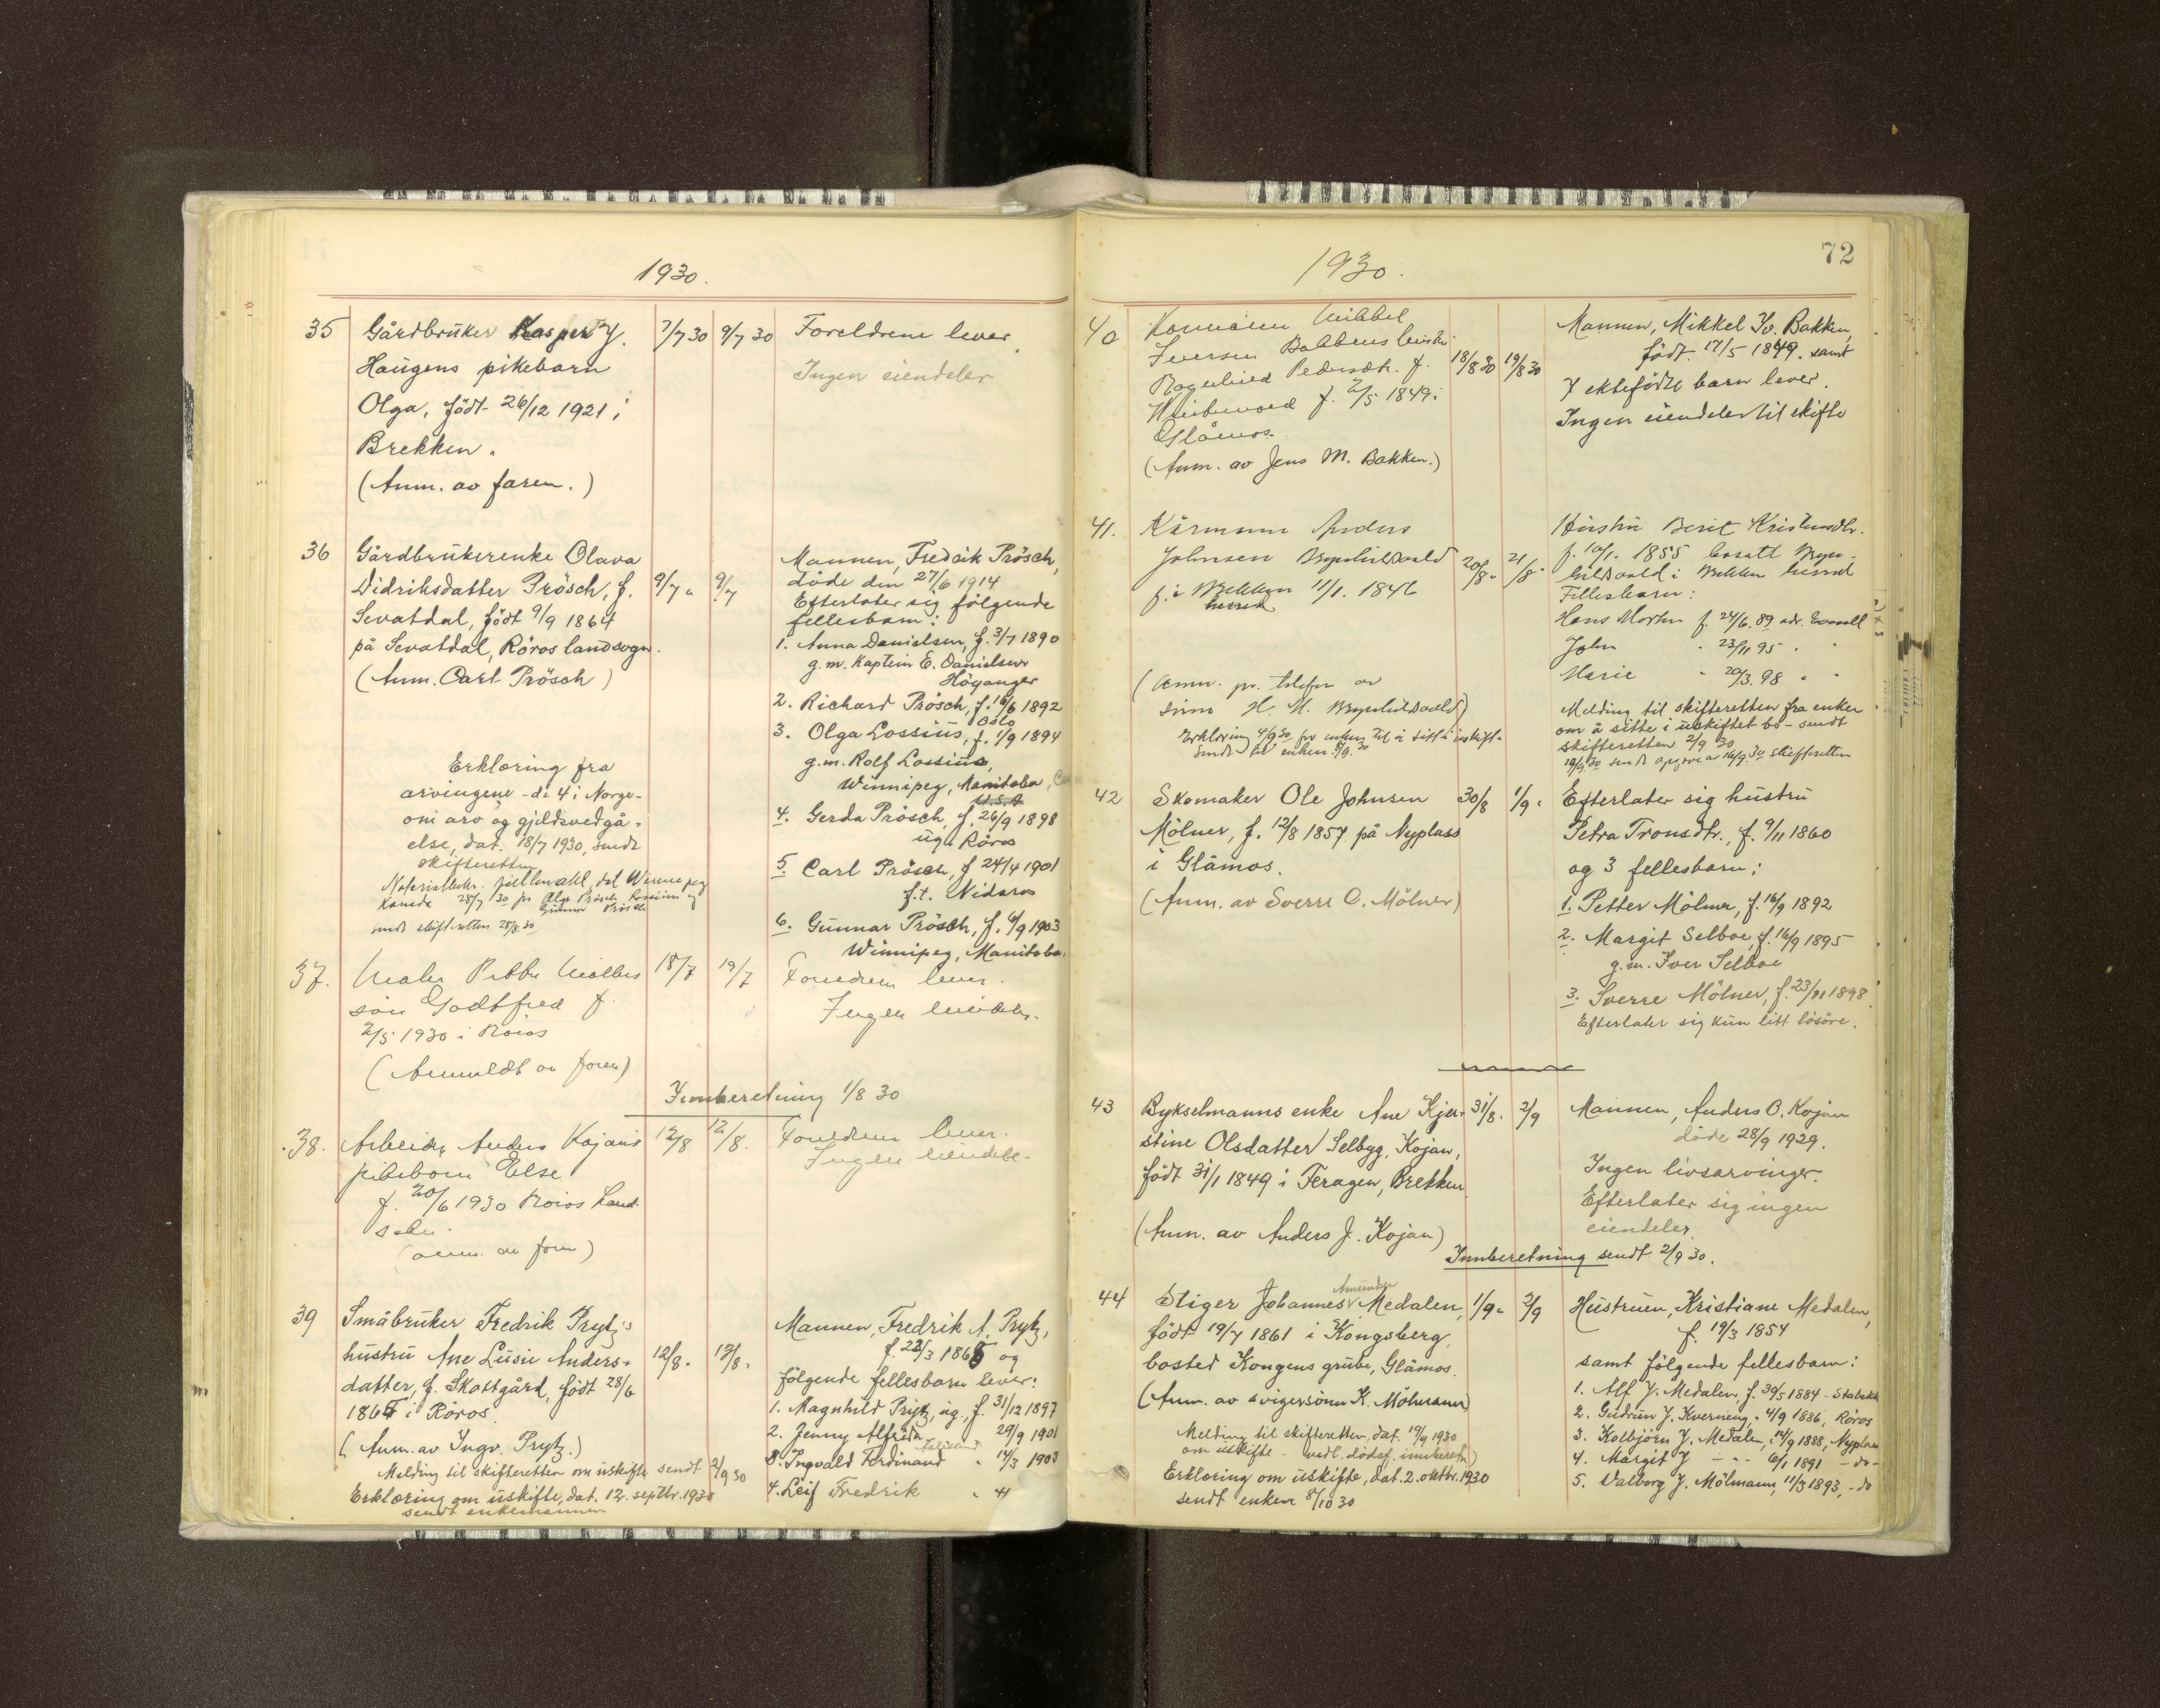 1930.
35 Gårdbruker Kasper J. 7/7 30 9/7 30 Foreldrene lever.
Haugens pikebarn Ingen eiendeler
Olga, født 26/12 1921 i
Brekken.
(Anm. av faren.)
36 Gårdbrukerenke Olava 9/7 „ 9/7
Didriksdatter Prösch, f.
Sevatdal, født 9/9 1864
på Sevatdal, Röros landsogn.
(Anm. Carl Prösch)
Mannen, Fredrik Prösch,
döde den 27/6 1914
Efterlater sig følgende
fellesbarn:
1. Anna Danielsen, f. 3/7 1890
g.m. Kaptein E. Danielsen
Höyanger
2. Richard Prösch, f. 16/6 1892
Oslo
3. Olga Lossius, f. 1/9 1894
g.m. Rolf Lossius,
Winnipeg, Manitoba,
U.S.A
4. Gerda Prösch, f. 26/9 1898
ug. Röros
5. Carl Prösch, f 24/4 1901
f.t. Nidaros
6. Gunnar Prösch, f. 6/9 1903
Winnipeg, Manitoba.
Erklæring fra
arvingene - de 4 i Norge -
om arv og gjeldsvedgå-
else, dat. 18/7 1930, sendt
skifteretten
dat Winnipeg
Kanada 28/7 30 Olga Prösch Lossius og
Gunnar Prösch
sendt skifteretten 28/8.30
37. Maler Petter Möllers 18/7 19/7 Foreldrene lever.
sön Godtfred f. Ingen eiendeler.
2/5 1930 i Röros
(Anmeldt av faren)
Innberetning 1/8 30
38. Arbeider Anders Kojans 12/8 12/8. Foreldrene lever.
pikebarn Else Ingen eiendeler.
f. 20/6 1930 Röros Land-
sogn
(anm. av faren)
39 Småbruker Fredrik Prytz's 12/8. 13/8.
hustru Ane Lusie Anders-
datter, f. Skottgård, født 28/6
1865 i Röros.
(Anm. av Ingv. Prytz.)
Melding til skifteretten om uskifte sendt 2/9 30
Erklæring om uskifte, dat. 12. septbr. 1930
sendt enkemannen
Mannen, Fredrik A. Prytz,
f. 22/3 1868 og
følgende fellesbarn lever:
1. Magnhild Prytz, ug., f. 31/12 1897
2. Jenny Alfrida 29/9 1901
3. Ingvald Ferdinand „ 14/3 1903
4. Leif Fredrik „ 4
72
1930.
40 Kaarmann Mikkel
Iversen Bakkens hustru
Ragnhild Pedersdtr. f. 18/8 30 19/8 30
f. 2/5 1849 i
Glåmos.
(Anm. av Jens M. Bakken.)
Mannen, Mikkel Iv. Bakken,
født 17/5 1849. samt
7 ektefødte barn lever.
Ingen eiendeler til skifte
41. Kårmann Anders
Johnsen Brynhildsvold 20/8 „ 21/8 „
f. i Brekken 11/1. 1846
herred
(Anm. pr. telefon av
sönn H. M. Brynhildsvold)
Erklæring 4/9 30 for enken til å sitte i uskifte
sendt til enken 8/9. 30
Hustru Berit Kristensdtr.
f. 10/1. 1855 bosatt Bryn-
hildsvold i Brekken herred
Fellesbarn:
Hans Morten f. 24/6. 89
John „ 23/11 95 „ „
Marie „ 20/3. 98 „ „
Melding til skifteretten fra enken
om å sitte i uskiftet bo - sendt
skifteretten 2/9 30
42 Skomaker Ole Johnsen 30/8 1/9 „
Mölner, f. 12/8 1857 på Nyplass
i Glåmos.
(Anm. av Sverre O. Mölner)
Efterlater sig hustru
Petra Tronsdtr., f. 9/11 1860
og 3 fellesbarn:
1. Petter Mölner, f. 16/9 1892
2. Margit Selboe, f. 16/9 1895
g.m. Iver Selboe
3. Sverre Mölner, f. 23/11 1898
Efterlater sig kun litt lösöre.
43 Bykselmanns enke Ane Kjer- 31/8. 2/9
stine Olsdatter Selbyg, Kojan,
født 31/1 1849 i Feragen, Brekken.
(Anm. av Anders J. Kojan)
Mannen, Anders O. Kojan
döde 28/9 1929.
Ingen livsarvinger.
Efterlater sig ingen
eiendeler.
Innberetning sendt 2/9 30.
44 Stiger Johannes Amundsen Medalen, 1/9 „ 3/9
født 19/7 1861 i Kongsberg,
bosted Kongens grube, Glåmos.
(Anm. av svigersönn K. Mölmann)
Melding til skifteretten, dat. 19/9 1930
om uskifte - vedl. dödsf. innberetn)
Erklæring om uskifte, dat. 2. oktbr. 1930
sendt enken 8/10 30
Hustruen, Kristiane Medalen,
f. 19/3 1854
samt følgende fellesbarn:
1. Alf J. Medalen, f. 30/5 1884 - Stabekk
2. Gudrun J. Kverneng, „ 4/9 1886, Röros
3. Kolbjörn J. Medalen, „ 14/9 1888, Nyplass
4. Margit J - „ - 6/1 1891 - do -
5. Valborg J. Mölmann, 11/3 1893, - do